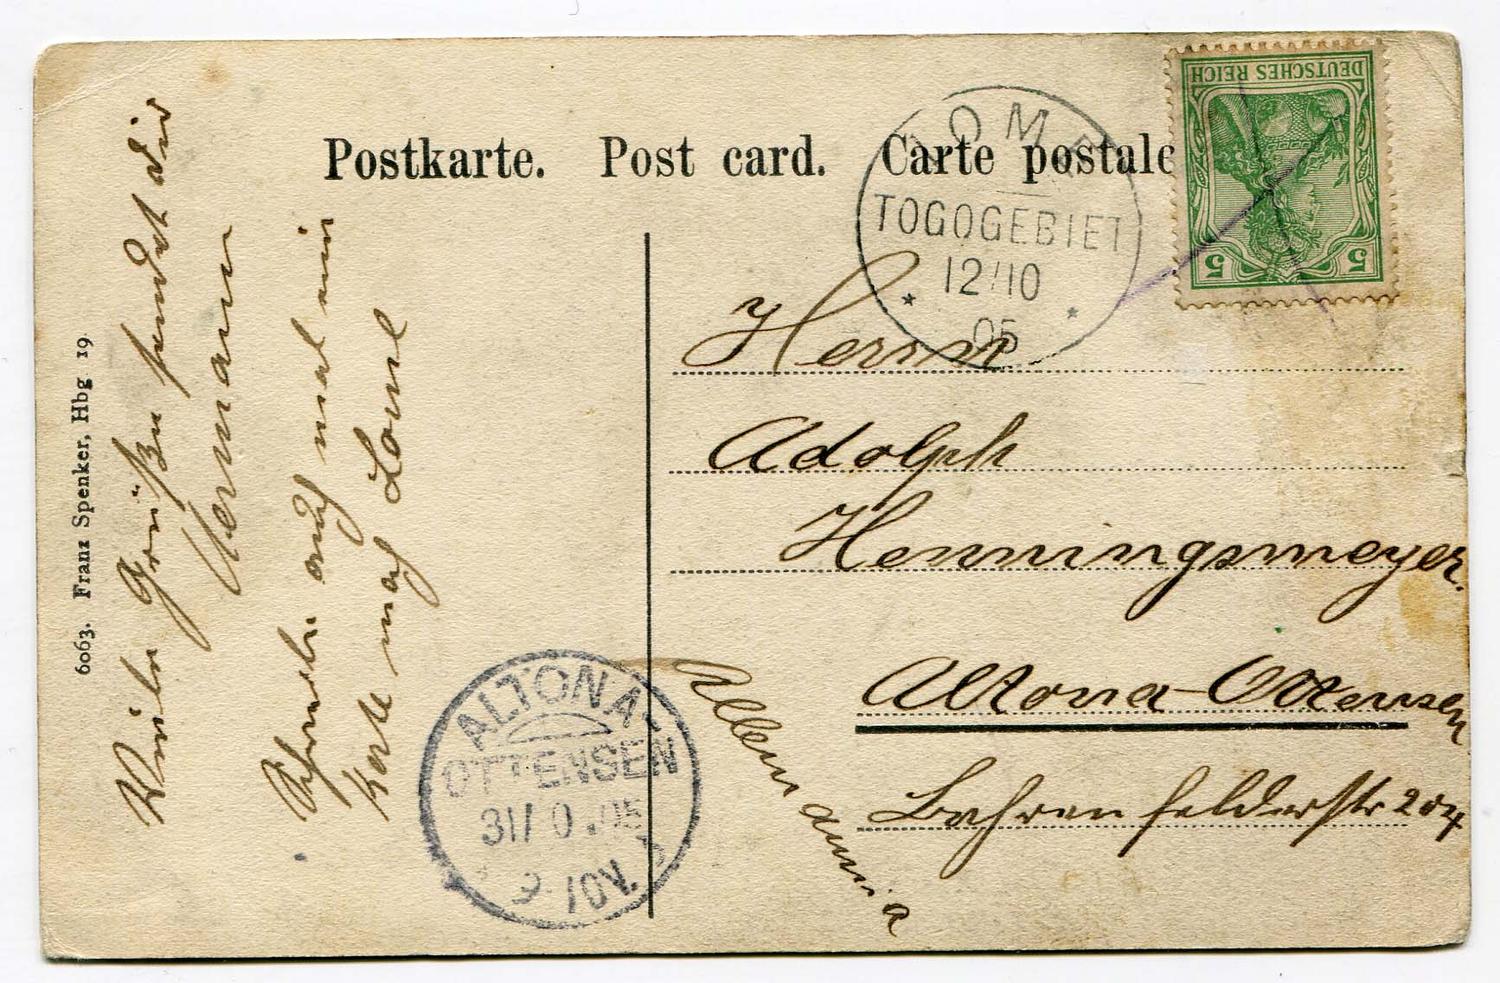 Postkarte. Post card. Carte postale
DEUTSCHES REICH
5 5
LOME
TOGOGEBIET
12/10
05
Herrn
Adolph
Henningsmeyer.
Altona-Ottensen
Bahrenfelderstr 204
Allemannia
ALTONA-
OTTENSEN
31/ 0.05
9-10V.
6063. Franz Spenker, Hbg 19.
Viele Grüße sendet dir
Hermann
Schreibe auch mal eine
Karte nach Lome